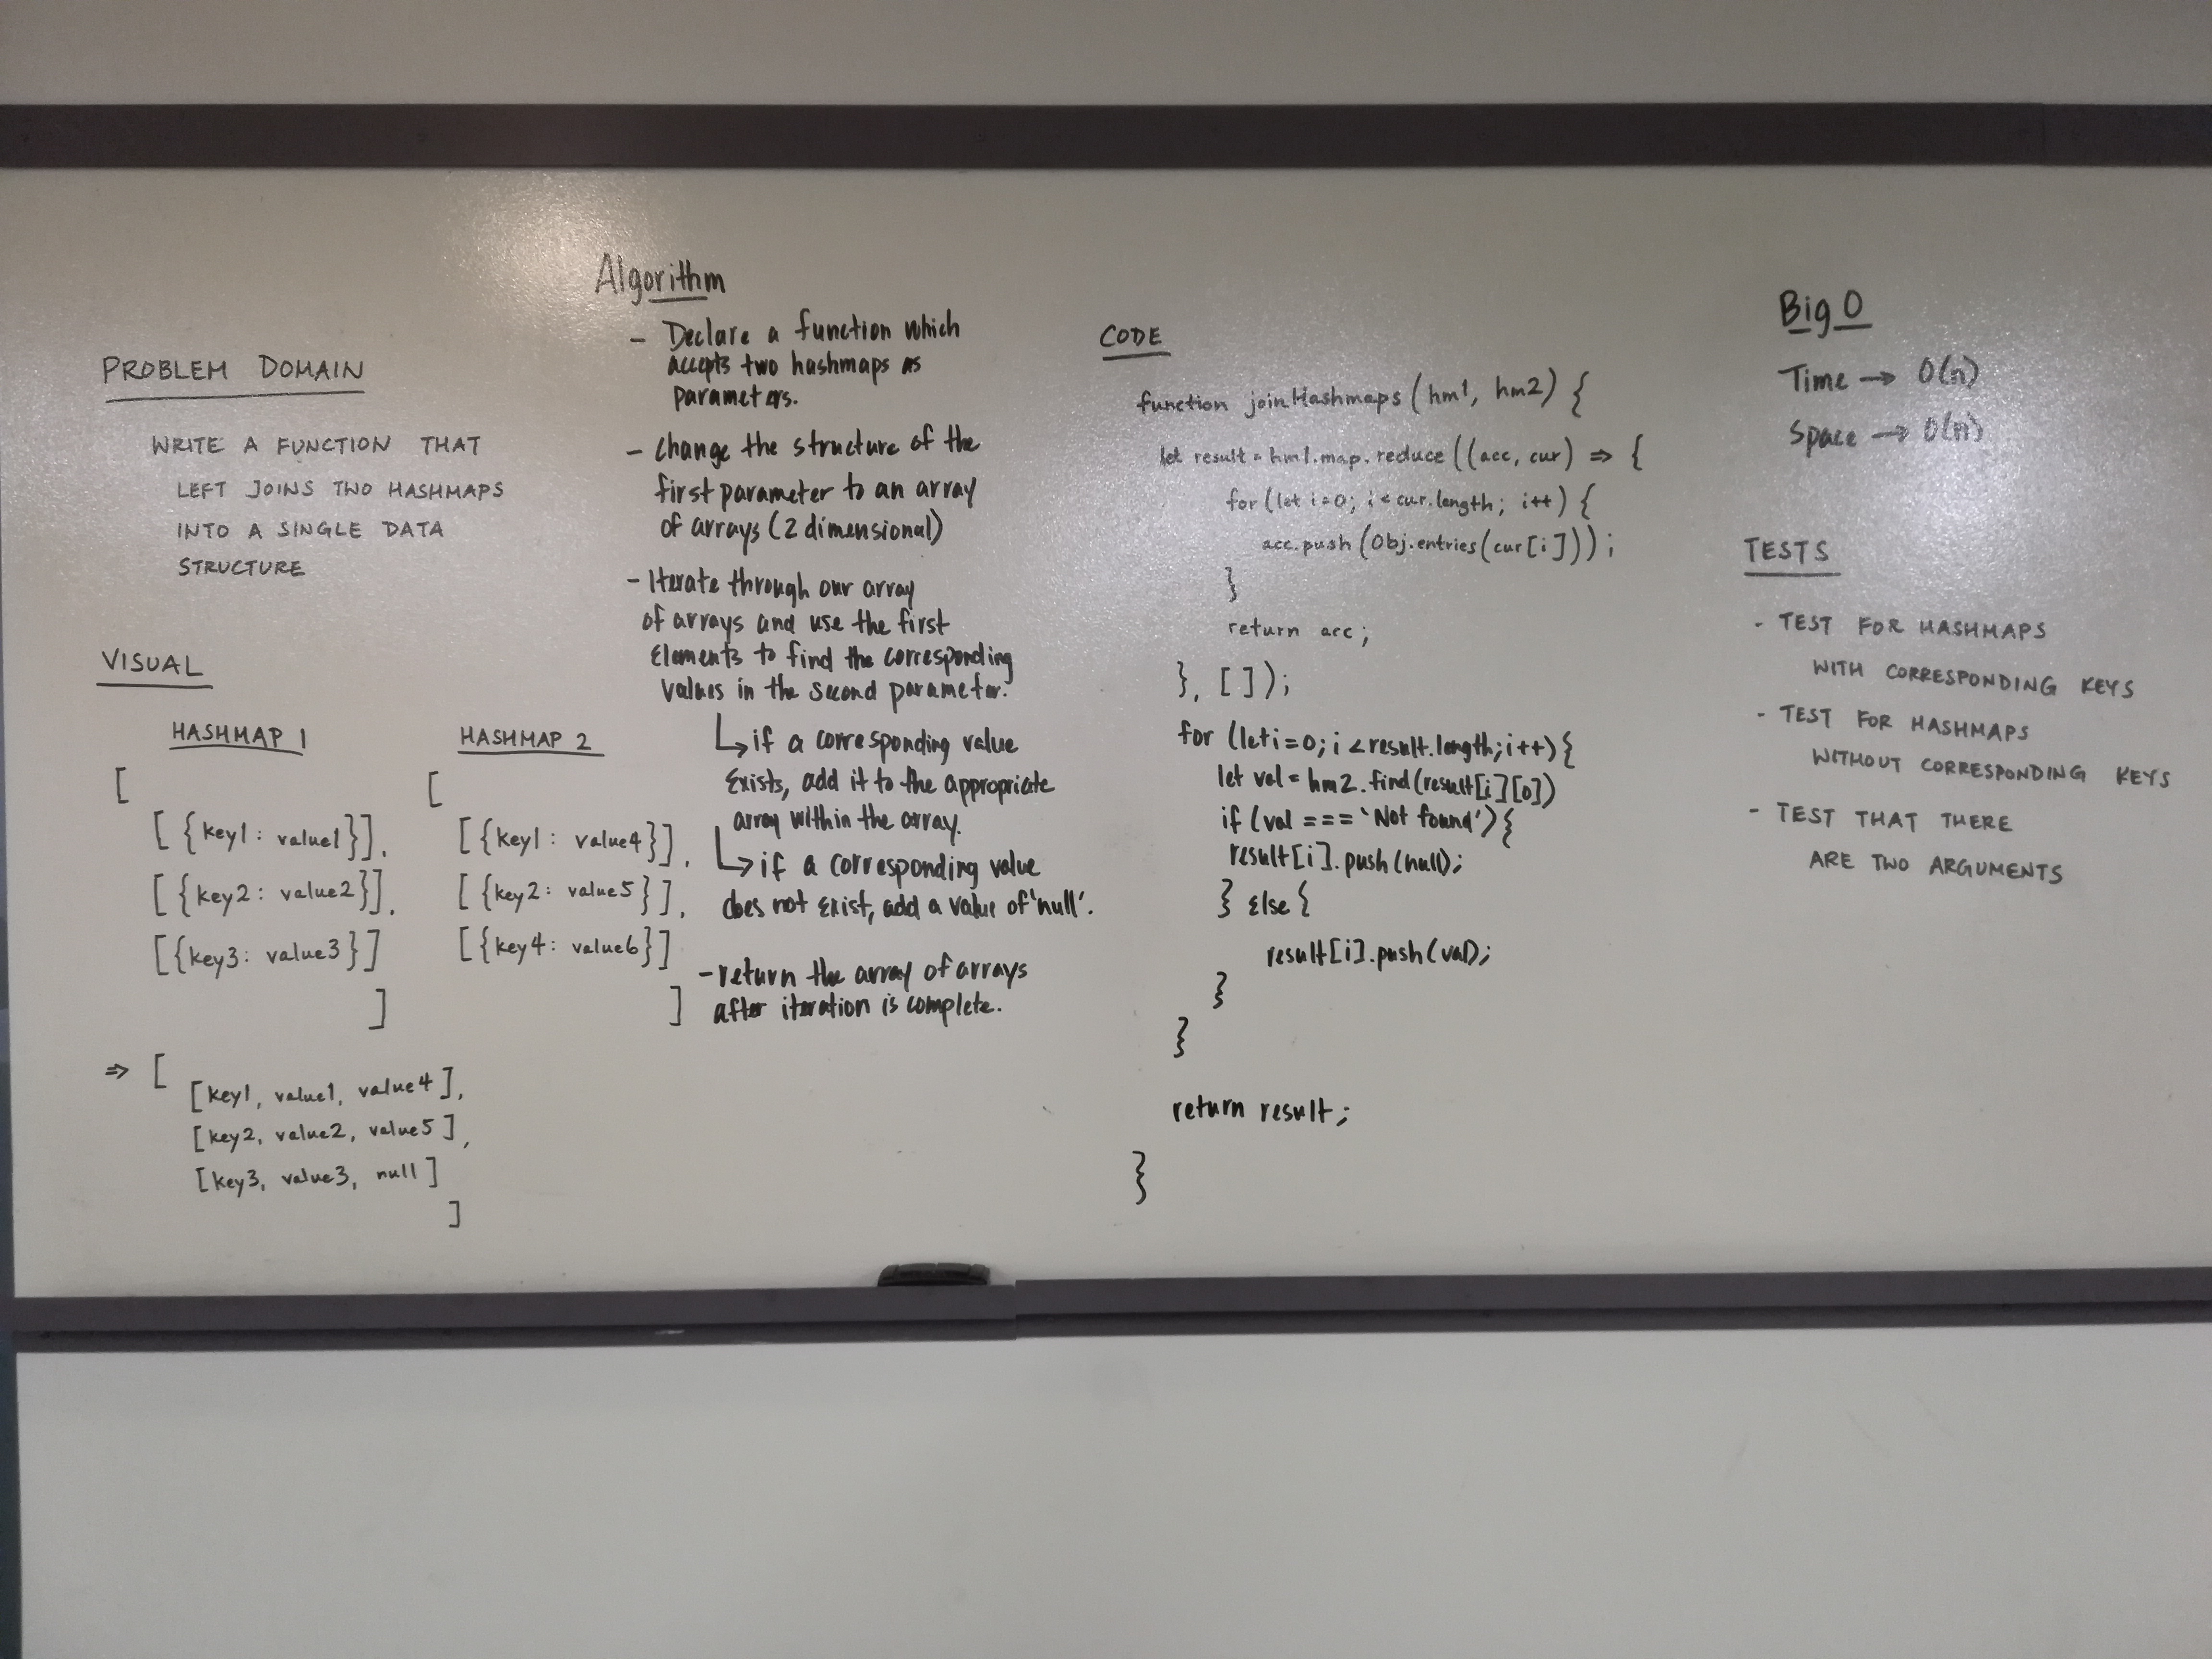 PROBLEM DOMAIN
WRITE A FUNCTION THAT
LEFT JOINS TWO HASHMAPS
INTO A SINGLE DATA
STRUCTURE
VISUAL
HASHMAP 1
[
[{key1: value1}],
[{key2: value2}],
[{key3: value3}]
]
HASHMAP 2
[
[{key1: value4}],
[{key2: value5}],
[{key4: value6}]
]
⇒ [
[key1, value1, value4],
[key2, value2, value5],
[key3, value3, null]
]
Algorithm
- Declare a function which
accepts two hashmaps as
parameters.
- change the structure of the
first parameter to an array
of arrays (2 dimensional)
- Iterate through our array
of arrays and use the first
elements to find the corresponding
values in the second parameter.
↳ if a corresponding value
exists, add it to the appropriate
array within the array.
↳ if a corresponding value
does not exist, add a value of 'null'.
- return the array of arrays
after iteration is complete.
CODE
function joinHashmaps (hm1, hm2) {
let result = hm1.map.reduce ((acc, cur) => {
for (let i=0; i < cur.length; i++) {
acc.push (Obj.entries(cur[i]));
}
return acc;
}, []);
for (let i=0; i < result.length; i++){
let val = hm2.find(result[i][0])
if (val === 'Not found'){
result[i].push(null);
} else {
result[i].push(val);
}
}
return result;
}
Big O
Time → O(n)
Space → O(n)
TESTS
- TEST FOR HASHMAPS
WITH CORRESPONDING KEYS
- TEST FOR HASHMAPS
WITHOUT CORRESPONDING KEYS
- TEST THAT THERE
ARE TWO ARGUMENTS